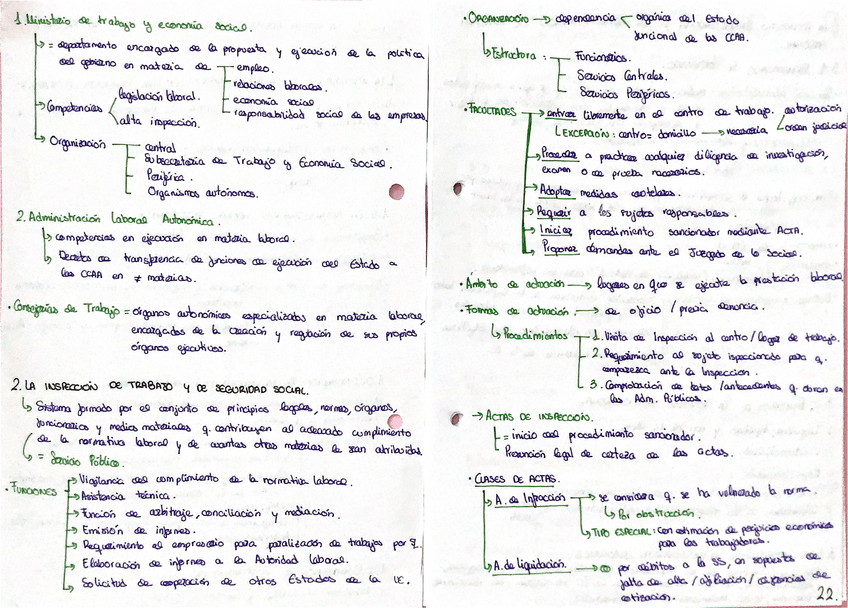 1. Ministerio de trabajo y economía social.
= departamento encargado de la propuesta y ejecución de la política
del gobierno en materia de empleo.
relaciones laborales.
economía social
responsabilidad social de las empresas.
Competencias legislación laboral.
alta inspección.
Organización central
Subsecretaría de Trabajo y Economía Social.
Periférica.
Organismos autónomos.
2. Administración Laboral Autonómica.
competencias en ejecución en materia laboral.
Decretos de transferencia de funciones de ejecución del Estado a
las CCAA en ≠ materias.
· Consejerías de Trabajo = órganos autonómicos especializados en materia laboral,
encargados de la creación y regulación de sus propios
órganos ejecutivos.
2. LA INSPECCIÓN DE TRABAJO Y DE SEGURIDAD SOCIAL.
Sistema formado por el conjunto de principios legales, normas, órganos,
funcionarios y medios materiales q. contribuyen al adecuado cumplimiento
de la normativa laboral y de cuantas otras materias le sean atribuidas.
= Servicio Público.
· FUNCIONES Vigilancia del cumplimiento de la normativa laboral.
Asistencia técnica.
Función de arbitraje, conciliación y mediación.
Emisión de informes.
Requerimiento al empresario para paralización de trabajos por
Elaboración de informes a la Autoridad laboral.
Solicitud de cooperación de otros Estados de la UE.
· ORGANIZACIÓN → dependencia orgánica del Estado
funcional de las CCAA.
Estructura : Funcionarios.
Servicios Centrales.
Servicios Periféricos.
· FACULTADES entrar libremente en el centro de trabajo.
EXCEPCIÓN: centro = domicilio → necesaria autorización
orden judicial
Proceder a practicar cualquier diligencia de investigación,
examen o de prueba necesarios.
Adoptar medidas cautelares.
Requerir a los sujetos responsables.
Iniciar procedimiento sancionador mediante ACTA.
Proponer demandas ante el Juzgado de lo Social.
· Ámbito de actuación → lugares en que se ejecute la prestación laboral.
· Formas de actuación → de oficio / previa denuncia.
Procedimientos 1. Visita de Inspección al centro/lugar de trabajo.
2. Requerimiento al sujeto inspeccionado para q.
comparezca ante la Inspección.
3. Comprobación de datos /antecedentes q. obren en
las Adm. Públicas.
→ ACTAS DE INSPECCIÓN.
= inicio del procedimiento sancionador.
Presunción legal de certeza de las actas.
· CLASES DE ACTAS.
A. de Infracción → se considera q. se ha vulnerado la norma.
Por obstrucción.
TIPO ESPECIAL: con estimación de perjuicios económicos
para los trabajadores.
A. de liquidación. → por débitos a la SS, en supuestos de
falta de alta /afiliación / diferencias de
cotización.
22.